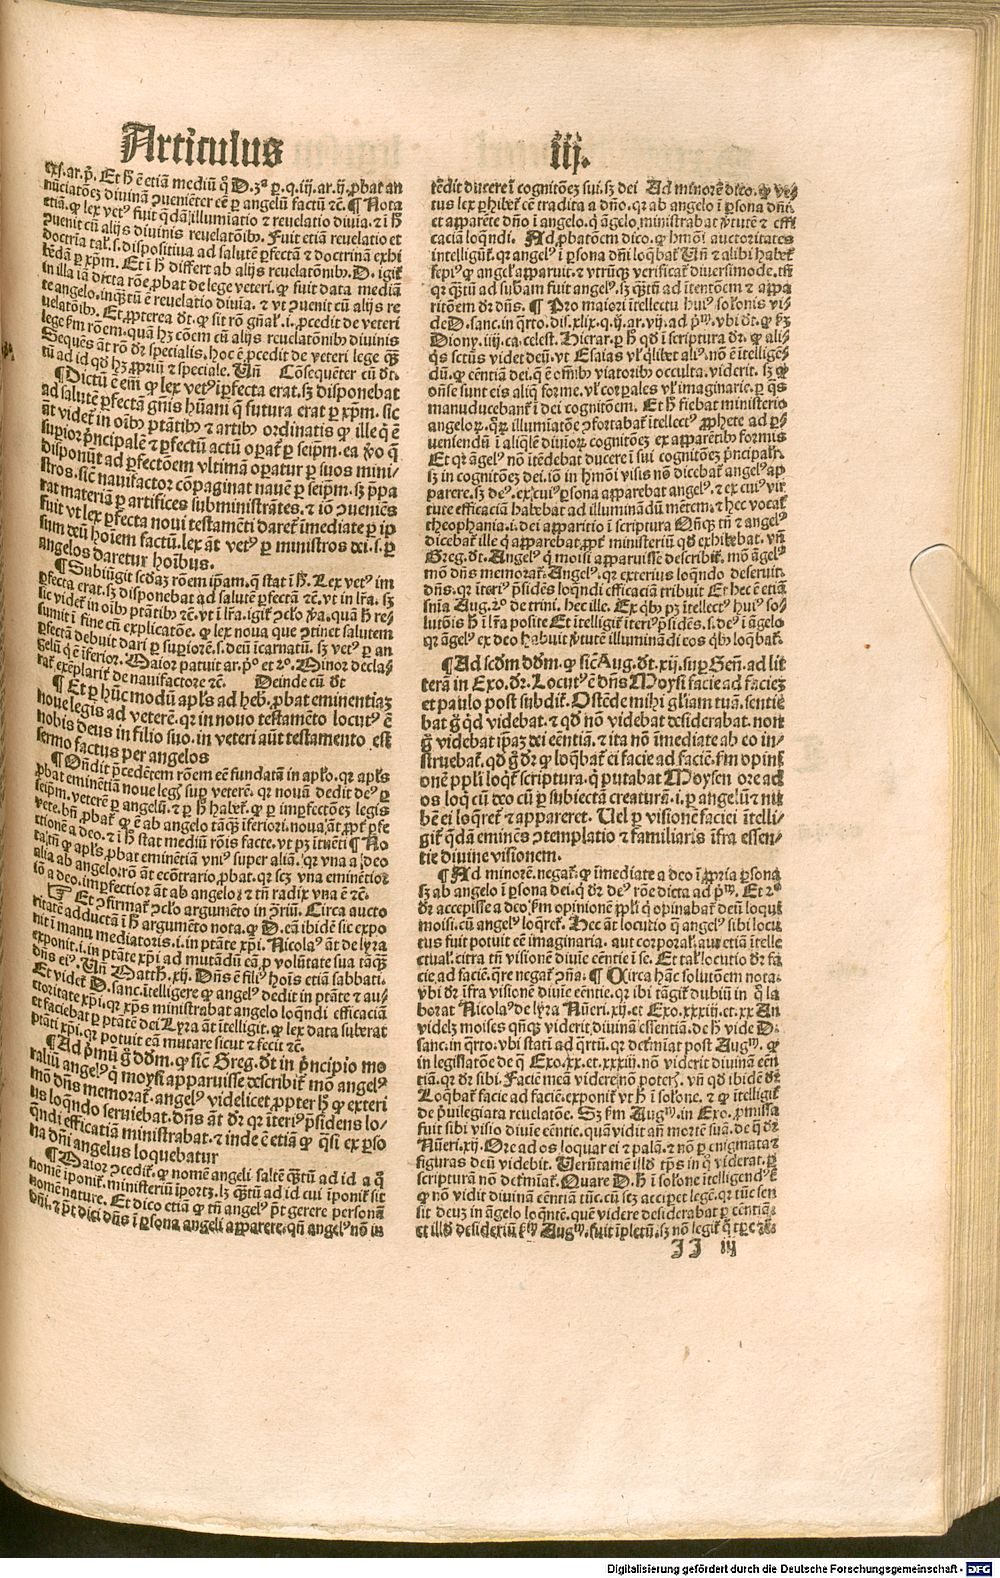 Articulus iij.
cxj. ar. p̄. Et h̄ ē etiā mediū q̄ D. 3ª p. q. iij. ar. ij. ꝓbat an
nūciatōeʒ diuinā ꝯueniēter eē p angelū factū ⁊c. ¶ Nota
etiā. ꝙ lex vetꝰ fuit q̄dā illumiatio ⁊ reuelatio diuīa. ⁊ ī h̄
ꝯuenit cū alijs diuinis reuelatōibꝰ. Fuit etiā reuelatio et
doctrīa tal'. s. dispositiua ad salutē ꝑfectā ⁊ doctrinā exhi
bēdā ꝑ xp̄m. Et ī h̄ differt ab alijs reuelatōnibꝰ. D. igit̄
in illa iā dicta rōe ꝓbat de lege veteri. ꝙ fuit data mediā
te angelo. inq̄ꝫtū ē reuelatio diuīa. ⁊ vt ꝯuenit cū alijs re
uelatōibꝰ. Et ꝓpterea dt̄. ꝙ sit rō gn̄al'. i. ꝓcedit de veteri
lege ẜm rōem. quā hꝫ cōem cū alijs reuelatōnibꝰ diuinis
Sequēs āt rō dr̄ specialis. hoc ē ꝓcedit de veteri lege q̄ꝫ
tū ad id qd̄ hꝫ ꝓpriū ⁊ speciale. Vn̄ Cōsequēter cū dt̄.
¶ Dictū ē em̄ ꝙ lex vetꝰ īperfecta erat. sꝫ disponebat
ad salutē ꝑfectā gn̄is hūani q̄ futura erat ꝑ xp̄m. sic
āt videt̄ in oībꝰ ptātibꝰ ⁊ artibꝰ ordinatis ꝙ ille q̄ ē
supior p̄ncipalē ⁊ ꝑfectū actū opat̄ ꝑ seip̄m. ea vo q̄
disponūt ad ꝑfectōem vltimā opatur ꝑ suos mini-
stros. sic nauifactor cōpaginat nauē ꝑ seip̄m. sꝫ p̄pa
rat materiā ꝑ artifices subministrātes. ⁊ iō ꝯueniēs
fuit vt lex ꝑfecta noui testamēti daret̄ īmediate ꝑ ip
sum deū hoīem factū. lex āt vetꝰ ꝑ ministros dei. s. ꝑ
angelos daretur hoībus.
¶ Subiūgit scd̄aꝫ rōem ip̄am. q̄ stat ī h̄. Lex vetꝰ im
ꝑfecta erat. sꝫ disponebat ad salutē ꝑfectā ⁊c. vt in lr̄a. sꝫ
sic videt̄ in oībꝰ ptātibꝰ ⁊c. vt ī lr̄a. igit̄ ꝯclo va. quā h̄ re-
sumit ī fine cū explicatōe. ꝙ lex noua que ꝯtinet salutem
ꝑfectā debuit dari ꝑ supiorē. s. deū īcarnatū. sꝫ vetꝰ ꝑ an
gelū q̄ ē īferior. Maior patuit ar. p̄º et 2º. Minor decla-
rat̄ exēplarit̄ de nauifactore ⁊c. Deinde cū dt̄
¶ Et ꝑ hūc modū apl's ad heb. ꝓbat eminentiaꝫ
noue legis ad veterē. qr in nouo testamēto locutꝰ ē
nobis deus in filio suo. in veteri aūt testamento est
sermo factus per angelos
¶ On̄dit p̄cedētem rōem eē fundatā in apl'o. qr apl's
ꝓbat eminentiā noue legꝭ sup veterē. qr nouā dedit deꝰ ꝑ
seip̄m. veterē ꝑ angelū. ⁊ ꝑ h̄ habet̄. ꝙ ꝑ imꝑfectōeꝫ legis
vete. bn̄ ꝓbat̄ ꝙ ē ab angelo tāq̄ꝫ īferiori. noua āt ꝓpt̄ ꝑfe
ctionē a deo. ⁊ ī h̄ stat mediū rōis facte. vt pꝫ ītuēti ¶ No
ta tn̄ ꝙ apl's ꝓbat eminētiā vniꝰ super aliā. qr vna a deo
alia ab angelo. rō āt ecōtrario ꝓbat. qr scꝫ vna eminētior
iō a deo. imꝑfectior āt ab angelo. ⁊ tn̄ radix vna ē ⁊c.
☞ Et ꝯfirmat̄ ꝯclo argumēto in ꝯriū. Circa aucto
ritatē adductā ī h̄ argumēto nota. ꝙ D. eā ibidē sic expo
nit ī manu mediatoris. i. in ptāte xp̄i. Nicolaꝰ āt de lyra
exponit. i. in ptāte xp̄i ad mutādū eā ꝑ volūtate sua tāq̄ꝫ
dn̄s eiꝰ. Vn̄ Matth. xij. Dn̄s ē filiꝰ hoīs etiā sabbati.
Et videt̄ D. sanc. ītelligere ꝙ angelꝰ dedit in ptāte ⁊ au-
ctoritate xp̄i. qr xp̄s ministrabat angelo loq̄ndi efficaciā
et faciebat ꝑ ptātē dei Lyra āt ītelligit. ꝙ lex data suberat
ptāti xp̄i. qr potuit eā mutare sicut ⁊ fecit ⁊c.
¶ Ad p̄mū g̊ dd̄m. ꝙ sic Greg. dt̄ in p̄ncipio mo
raliū angelꝰ q̄ moysi apparuisse describit̄ mō angelꝰ
mō dn̄s memorat̄. angelꝰ videlicet ꝓpter h̄ ꝙ exteri
us loq̄ndo seruiebat. dn̄s āt dr̄ qr iteriꝰ p̄sidens lo-
q̄ndi efficatiā ministrabat. ⁊ inde ē etiā ꝙ q̄si ex ꝑso
na dn̄i angelus loquebatur
¶ Maior ꝯcedit̄. ꝙ nomē angeli saltē q̄ꝫtū ad id a q̄
nomē īponit̄. ministeriū īportꝫ. lꝫ q̄ꝫtū ad id cui īponit̄ sit
nomē nature. Et dico etiā ꝙ tn̄ angelꝰ p̄t gerere personā
dn̄i. ⁊ p̄t dici dn̄s ī ꝑsona angeli apparere. qn̄ angelꝰ nō in
tēdit ducere ī cognitōeꝫ sui. sꝫ dei Ad minorē dico. ꝙ ve
tus lex ꝑhibet̄ eē tradita a dn̄o. qr ab angelo ī ꝑsona dn̄i.
et apparēte dn̄o ī angelo. q̄ āgelo ministrabat vtutē ⁊ effi
caciā loq̄ndi. Ad ꝓbatōem dico. ꝙ hmōi auctoritates
intelligūt̄. qr angelꝰ ī ꝑsona dn̄i loq̄bat̄ Vn̄ ⁊ alibi habet̄
sepiꝰ ꝙ angelꝰ apparuit. ⁊ vtrūqꝫ verificat̄ diuersimode. tn̄
qr q̄ꝫtū ad subam fuit angelꝰ. sꝫ q̄ꝫtū ad itentōem ⁊ appa
ritōem dr̄ dn̄s. ¶ Pro maiori ītellectu huiꝰ solonis vi
de D. sanc. in q̄rto. dis. xlix. q. ij. ar. vij. ad p̄ᵐ. vbi dt̄. ꝙ ẜm
Diony. iiij. ca. celest. Hierar. ꝑ h̄ qd̄ ī scriptura dr̄. ꝙ ali-
q̄s sctūs videt deū. vt Esaias vl' q̄libet aliꝰ. nō ē ītelligē-
dū. ꝙ eēntiā dei. q̄ ē oībꝰ viatoribꝰ occulta. viderit. sꝫ ꝙ
on̄se sunt eis aliq̄ forme. vl' corpales vl' imaginarie. ꝑ q̄s
manuducebant̄ ī dei cognitōem. Et h̄ fiebat ministerio
angeloꝝ. q̄ꝝ illumiatōe ꝯfortabat̄ ītellectꝰ ꝓphete ad ꝑ-
ueniendū ī aliq̄lē diuinoꝝ cognitōeꝫ ex apparētibꝰ formis
Et qr āgelꝰ nō ītēdebat ducere ī sui cognitōeꝫ p̄ncipalr̄.
sꝫ in cognitōeꝫ dei. iō in hmōi visis nō dicebat̄ angelꝰ ap
parere. sꝫ deꝰ. ex cuiꝰ ꝑsona apparebat angelꝰ. ⁊ ex cuiꝰ vir
tute efficaciā habebat ad illuminādū mētem. ⁊ hec vocat̄
theophania. i. dei apparitio ī scriptura Qn̄qꝫ tn̄ ⁊ angelꝰ
dicebat̄ ille q̄ apparebat. ꝓpt̄ ministeriū qd̄ exhibebat. vn̄
Greg. dt̄. Angelꝰ q̄ moisi apparuisse describit̄. mō āgelꝰ
mō dn̄s memorat̄. Angelꝰ. qr exterius loq̄ndo deseruit.
dn̄s. qr iteriꝰ p̄sidēs loq̄ndi efficaciā tribuit Et hec ē etiā
snīa Aug. 2º de trini. hec ille. Ex q̄bꝰ pꝫ ītellectꝰ huiꝰ so-
lutōis h̄ ī lr̄a posite Et ītelligit̄ iteriꝰ p̄sidēs. s. deꝰ ī āgelo.
qr āgelꝰ ex deo habuit vtutē illuminādi eos q̄bꝰ loq̄bat̄.
¶ Ad scd̄m dd̄m. ꝙ sic Aug. dt̄ xij. sup Gen̄. ad lit
terā in Exo. dr̄. Locutꝰ ē dn̄s Moysi facie ad facieꝫ
et paulo post subdit̄. Ostēde mihi gl'iam tuā. sentie
bat g̊ qd̄ videbat. ⁊ qd̄ nō videbat desiderabat. non
g̊ videbat ip̄aꝫ dei eēntiā. ⁊ ita nō īmediate ab eo in-
struebat̄. qd̄ g̊ dr̄ ꝙ loq̄bat̄ ei facie ad faciē. ẜm opini
onē ppl'i loq̄t̄ scriptura. q̄ putabat Moysen ore ad
os loq̄ cū deo cū ꝑ subiectā creaturā. i. ꝑ angelū ⁊ nu
bē ei loq̄ret̄ ⁊ appareret. Vel ꝑ visionē faciei ītelli-
git̄ q̄dā eminēs ꝯtemplatio ⁊ familiaris īfra essen-
tie diuine visionem.
¶ Ad minorē. negat̄. ꝙ īmediate a deo ī ꝓpria ꝑsona
sꝫ ab angelo ī ꝑsona dei. q̄ dr̄ deꝰ rōe dicta ad p̄ᵐ. Et 2º
dr̄ accepisse a deo. ẜm opinionē ppl'i q̄ opinabat̄ deū loqui
moisi. cū angelꝰ loq̄ret̄. Hec āt locutio q̄ angelꝰ sibi locu
tus fuit potuit eē imaginaria. aut corporal'. aut etiā ītelle
ctual'. citra tn̄ visionē diuie eēntie ī se. Et tal' locutio dr̄ fa
cie ad faciē. q̄re negat̄ ꝯn̄a. ¶ Circa hāc solutōem nota.
vbi dr̄ īfra visionē diuie eēntie. qr ibi tāgit̄ dubiū in q̄ la
borat Nicolaꝰ de lyra Nūeri. xij. et Exo. xxxiij. et. xx An
videlꝫ moises qn̄qꝫ viderit diuinā essentiā. de h̄ vide D.
sanc. in q̄rto. vbi statī ad q̄rtū. qr det̄miat post Augᵐ. ꝙ
in legislatōe de q̄ Exo. xx. et. xxxiij. nō viderit diuinā eēn
tiā. qr dr̄ sibi. Faciē meā videre nō poterꝭ. vn̄ qd̄ ibidē dr̄
Loq̄bat̄ facie ad faciē. exponit̄ vt h̄ ī solone. ⁊ ꝙ ītelligit̄
de p̄uilegiata reuelatōe. Sꝫ ẜm Augᵐ. in Exo. ꝓmissa
fuit sibi visio diuie eēntie. quā vidit an̄ mortē suā. de q̄ dr̄
Nūeri. xij. Ore ad os loquar ei ⁊ palā. ⁊ nō ꝑ enigmata ⁊
figuras deū videbit. Verūtamē illd̄ tp̄s in q̄ viderat. ꝑ
scripturā nō det̄miat̄. Quare D. h̄ ī solone itelligend' ē
ꝙ nō vidit diuinā eēntiā tūc. cū scꝫ accipet legē. qr tūc sen
sit deuꝫ in āgelo loq̄ntē. quē videre desiderabat ꝑ eēntiā.
et illd̄ desideriū ẜm Augᵐ. fuit īpletū. sꝫ nō legit̄ q̄ tꝑe ⁊c.
JJ iij
Digitalisierung gefördert durch die Deutsche Forschungsgemeinschaft - DFG